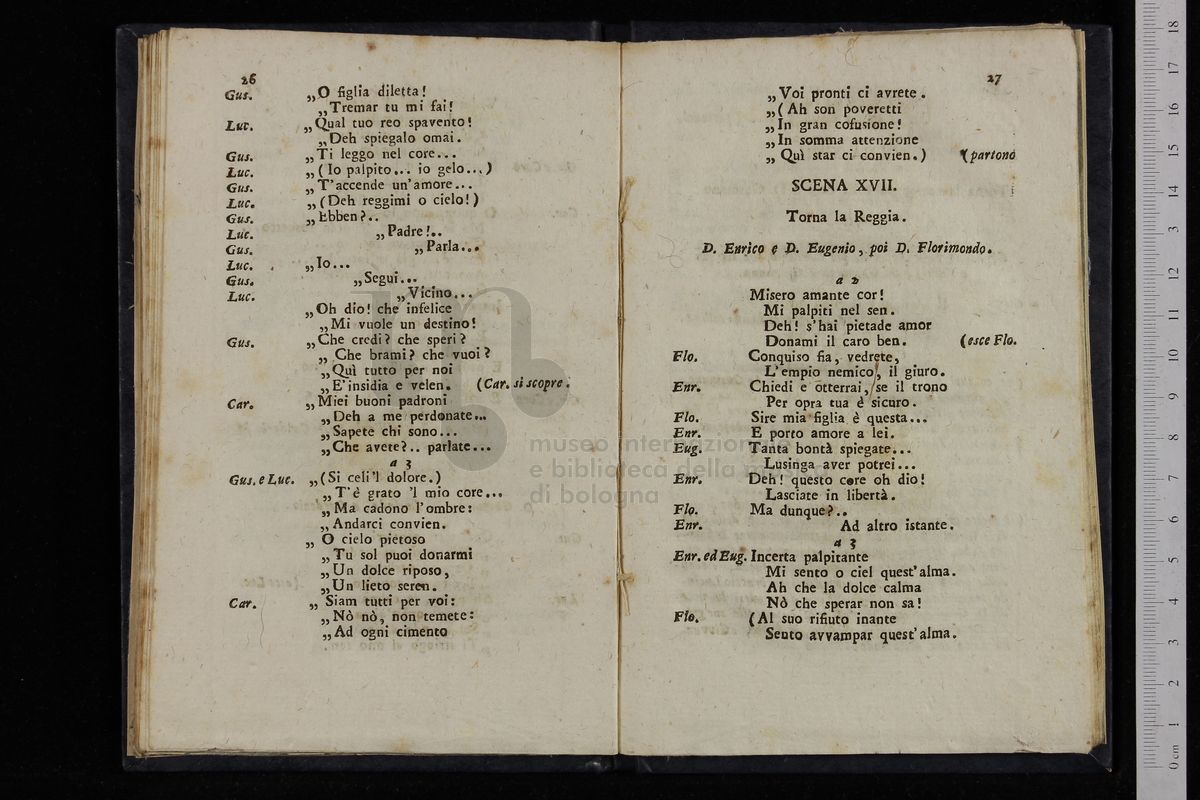 26
Gus. „O figlia diletta!
„Tremar tu mi fai!
Luc. „Qual tuo reo spavento!
„Deh spiegalo omai.
Gus. „Ti leggo nel core...
Luc. „(Io palpito... io gelo...)
Gus. „T'accende un'amore...
Luc. „(Deh reggimi o cielo!)
Gus. „Ebben?..
Luc. „Padre!..
Gus. „Parla...
Luc. „Io...
Gus. „Segui...
Luc. „Vicino...
„Oh dio! che infelice
„Mi vuole un destino!
Gus. „Che credi? che speri?
„Che brami? che vuoi?
„Quì tutto per noi
„E' insidia e velen. (Car. si scopre.
Car. „Miei buoni padroni
„Deh a me perdonate...
„Sapete chi sono...
„Che avete?.. parlate...
a 3
Gus. e Luc. „(Si celi 'l dolore.)
„T'è grato 'l mio core...
„Ma cadono l'ombre:
„Andarci convien.
„O cielo pietoso
„Tu sol puoi donarmi
„Un dolce riposo,
„Un lieto seren.
Car. „Siam tutti per voi:
„Nò nò, non temete:
„Ad ogni cimento
27
„Voi pronti ci avrete.
„(Ah son poveretti
„In gran cofusione!
„In somma attenzione
„Quì star ci convien.) (partono
SCENA XVII.
Torna la Reggia.
D. Enrico e D. Eugenio, poi D. Florimondo.
a 2
Misero amante cor!
Mi palpiti nel sen.
Deh! s'hai pietade amor
Donami il caro ben. (esce Flo.
Flo. Conquiso fia, vedrete,
L'empio nemico, il giuro.
Enr. Chiedi e otterrai, se il trono
Per opra tua è sicuro.
Flo. Sire mia figlia è questa...
Enr. E porto amore a lei.
Eug. Tanta bontà spiegate...
Lusinga aver potrei...
Enr. Deh! questo core oh dio!
Lasciate in libertà.
Flo. Ma dunque?..
Enr. Ad altro istante.
a 3
Enr. ed Eug. Incerta palpitante
Mi sento o ciel quest'alma.
Ah che la dolce calma
Nò che sperar non sa!
Flo. (Al suo rifiuto inante
Sento avvampar quest'alma.
museo internazionale
e biblioteca della musica
di bologna
0 cm 1 2 3 4 5 6 7 8 9 10 11 12 13 14 15 16 17 18